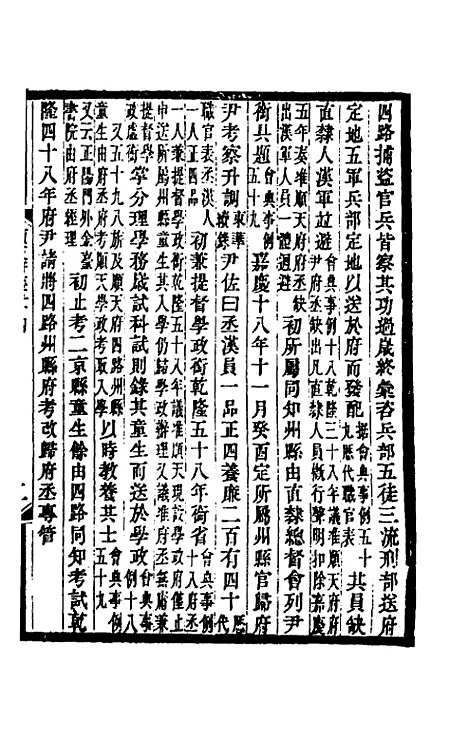 四路捕盜官兵皆察其功過歲終彙咨兵部五徒三流刑部送府
定地五軍兵部定地以送於府而發配據會典事例五十九歷代職官表其員缺
直隸人漢軍故避會典事例十八乾隆三十八年議准順天府府尹府丞缺凡直隸人員例行聲明扣除嘉慶
五年奏准順天府府丞缺出漢軍人員一體迴避初所屬同知州縣由直隸總督會列尹
銜具題會典事例五十九嘉慶十八年十一月癸酉定所屬州縣官歸府
尹考察升調東華續錄尹佐曰丞漢員一品正四養廉二百有四十歷代
職官表丞漢人一人正四品初兼提督學政銜乾隆五十八年銜省會典事例十八府丞
一人兼提督學政銜乾隆五十八年議准順天現設學政府僅止
申送所屬州縣童生其入學仍歸學政辦理又議准府丞無庸兼
提督學政虛銜掌分理學務歲試科試則錄其童生而送於學政會典事例十八
又五十九八旗及順天府四路州縣童生由府丞錄送順天學政考取入學以時教養其士會典事例五十九
又云正陽門外金臺書院由府丞經理初止考二京縣童生餘由四路同知考試乾
隆四十八年府尹請將四路州縣府考改歸府丞專管